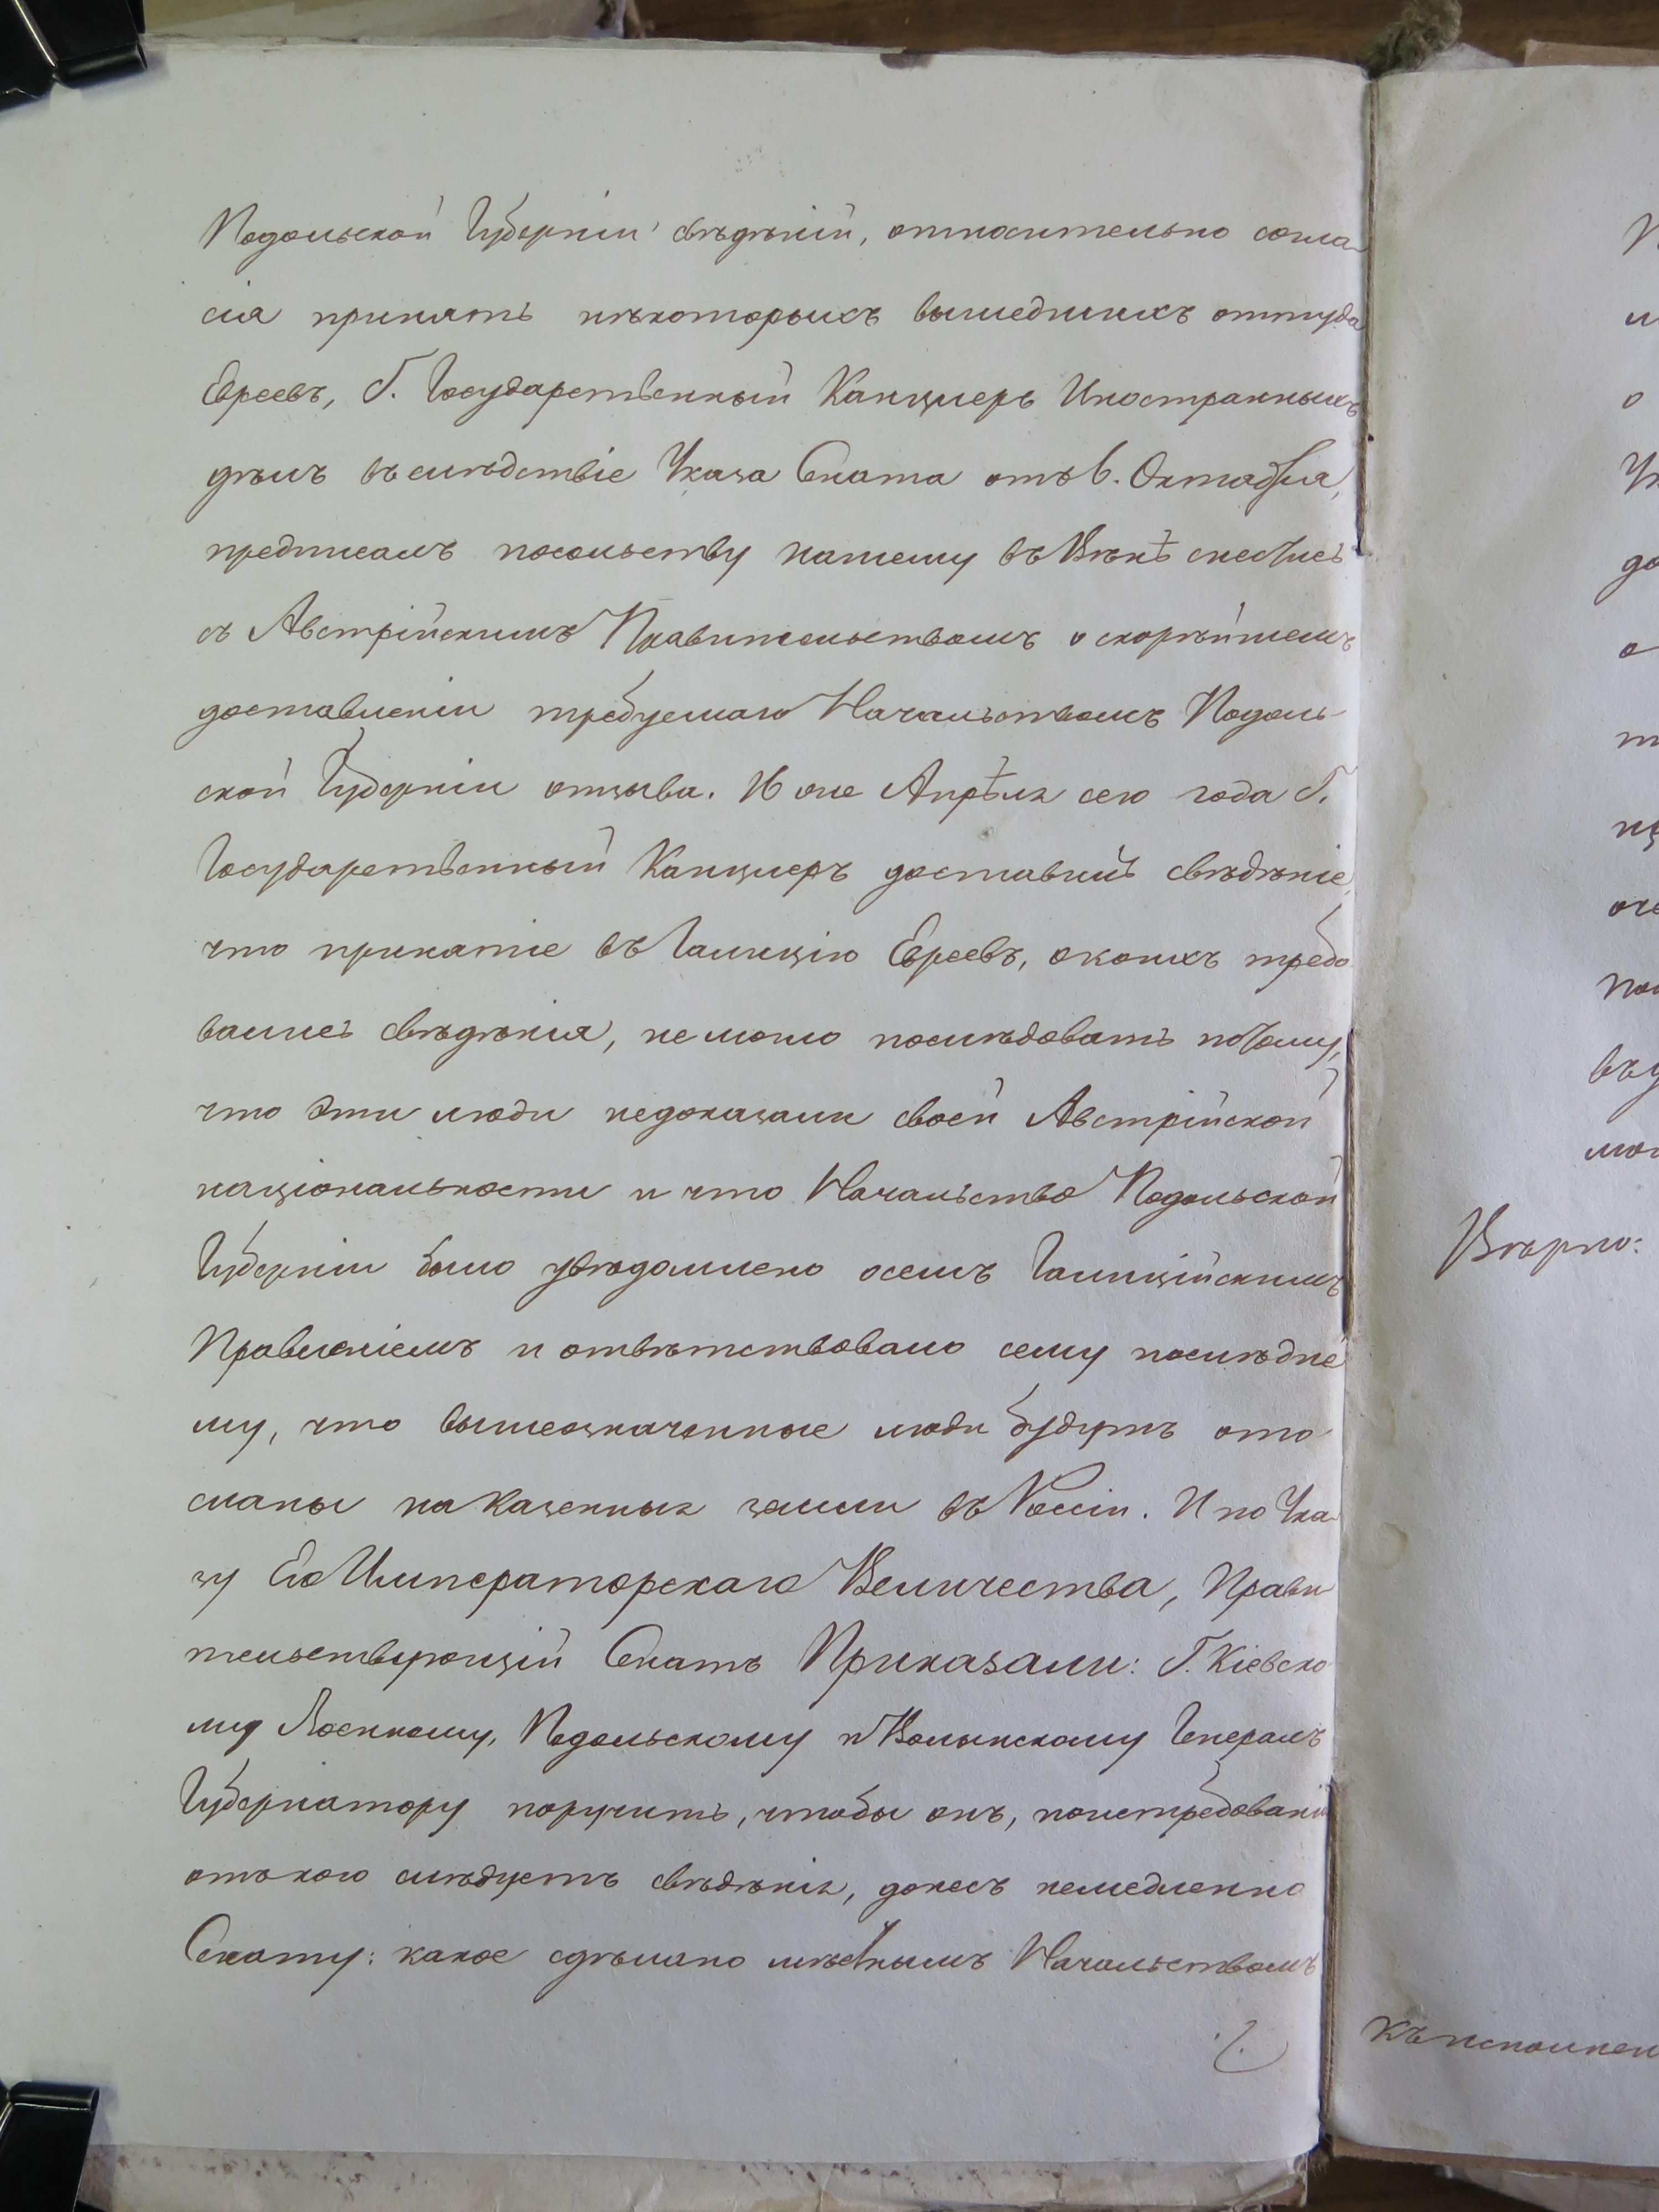 Подольской Губерніи свѣдѣній, относительно согла-
сія принять нѣкоторыхъ вышедшихъ оттуда
Евреевъ, Г. Государственный Канцлеръ Иностранныхъ
дѣлъ въ слѣдствіе Указа Сената отъ 6. Октября,
предписалъ посольству нашему въ Вѣнѣ снестись
съ Австрійскимъ Правительствомъ о скорѣйшемъ
доставленіи требуемаго Начальствомъ Подоль-
ской Губерніи отзыва. 16 ого Апрѣля сего года Г.
Государственный Канцлеръ доставилъ свѣдѣніе,
что принятіе въ Галицію Евреевъ, о коихъ требо
вались свѣдѣнія, не могло послѣдовать потому,
что эти люди недоказали своей Австрійской
національности и что Начальство Подольской
Губерніи было увѣдомлено осемъ Галиційскимъ
Правленіемъ и отвѣтствовало сему послѣдне
му, что вышеозначенные люди будутъ ото
сланы на казенныя земли въ Россіи. И по Ука-
зу Его Императорскаго Величества, Прави
тельствующій Сенатъ Приказали: Г. Кіевско
му Военному, Подольскому и Волынскому Генералъ
Губернатору поручить, чтобы онъ, поистребованіи
отъ кого слѣдуетъ свѣдѣнія, донесъ немедленно
Сенату: какое сдѣлано мѣстнымъ Начальствомъ
Вѣрно: